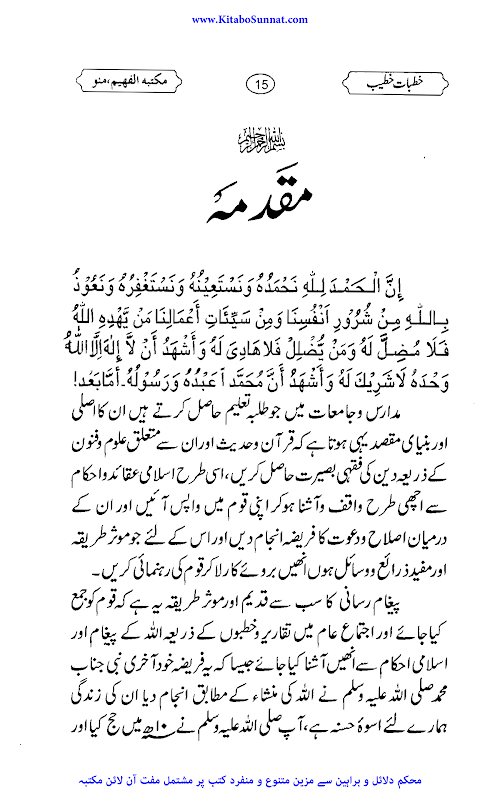 www.KitaboSunnat.com
خطبات خطیب
15
مکتبہ الفہیم، مئو
بسم الله الرحمن الرحيم
مقدمہ
إِنَّ الْحَمْدَ لِلّٰهِ نَحْمَدُهُ وَنَسْتَعِيْنُهُ وَنَسْتَغْفِرُهُ وَنَعُوْذُ
بِاللّٰهِ مِنْ شُرُوْرِ اَنْفُسِنَا وَمِنْ سَيِّئَاتِ أَعْمَالِنَا مَنْ يَّهْدِهِ اللّٰهُ
فَلَا مُضِلَّ لَهُ وَمَنْ يُّضْلِلْ فَلَا هَادِىَ لَهُ وَأَشْهَدُ أَنْ لَّا إِلٰهَ إِلَّا اللّٰهُ
وَحْدَهُ لَا شَرِيْكَ لَهُ وَأَشْهَدُ أَنَّ مُحَمَّداً عَبْدُهُ وَرَسُوْلُهُ۔ أَمَّا بَعْد!
مدارس و جامعات میں جو طلبہ تعلیم حاصل کرتے ہیں ان کا اصلی
اور بنیادی مقصد یہی ہوتا ہے کہ قرآن و حدیث اور ان سے متعلق علوم وفنون
کے ذریعہ دین کی فقہی بصیرت حاصل کریں، اسی طرح اسلامی عقائد و احکام
سے اچھی طرح واقف و آشنا ہو کر اپنی قوم میں واپس آئیں اور ان کے
درمیان اصلاح و دعوت کا فریضہ انجام دیں اور اس کے لئے جو موثر طریقہ
اور مفید ذرائع و وسائل ہوں انھیں بروئے کار لا کر قوم کی رہنمائی کریں۔
پیغام رسانی کا سب سے قدیم اور موثر طریقہ یہ ہے کہ قوم کو جمع
کیا جائے اور اجتماع عام میں تقاریر و خطبوں کے ذریعہ اللہ کے پیغام اور
اسلامی احکام سے انھیں آشنا کیا جائے جیسا کہ یہ فریضہ خود آخری نبی جناب
محمد صلی اللہ علیہ وسلم نے اللہ کی منشاء کے مطابق انجام دیا ان کی زندگی
ہمارے لئے اسوۂ حسنہ ہے، آپ صلی اللہ علیہ وسلم نے ۱۰ھ میں حج کیا اور
محکم دلائل و براہین سے مزین متنوع و منفرد کتب پر مشتمل مفت آن لائن مکتبہ